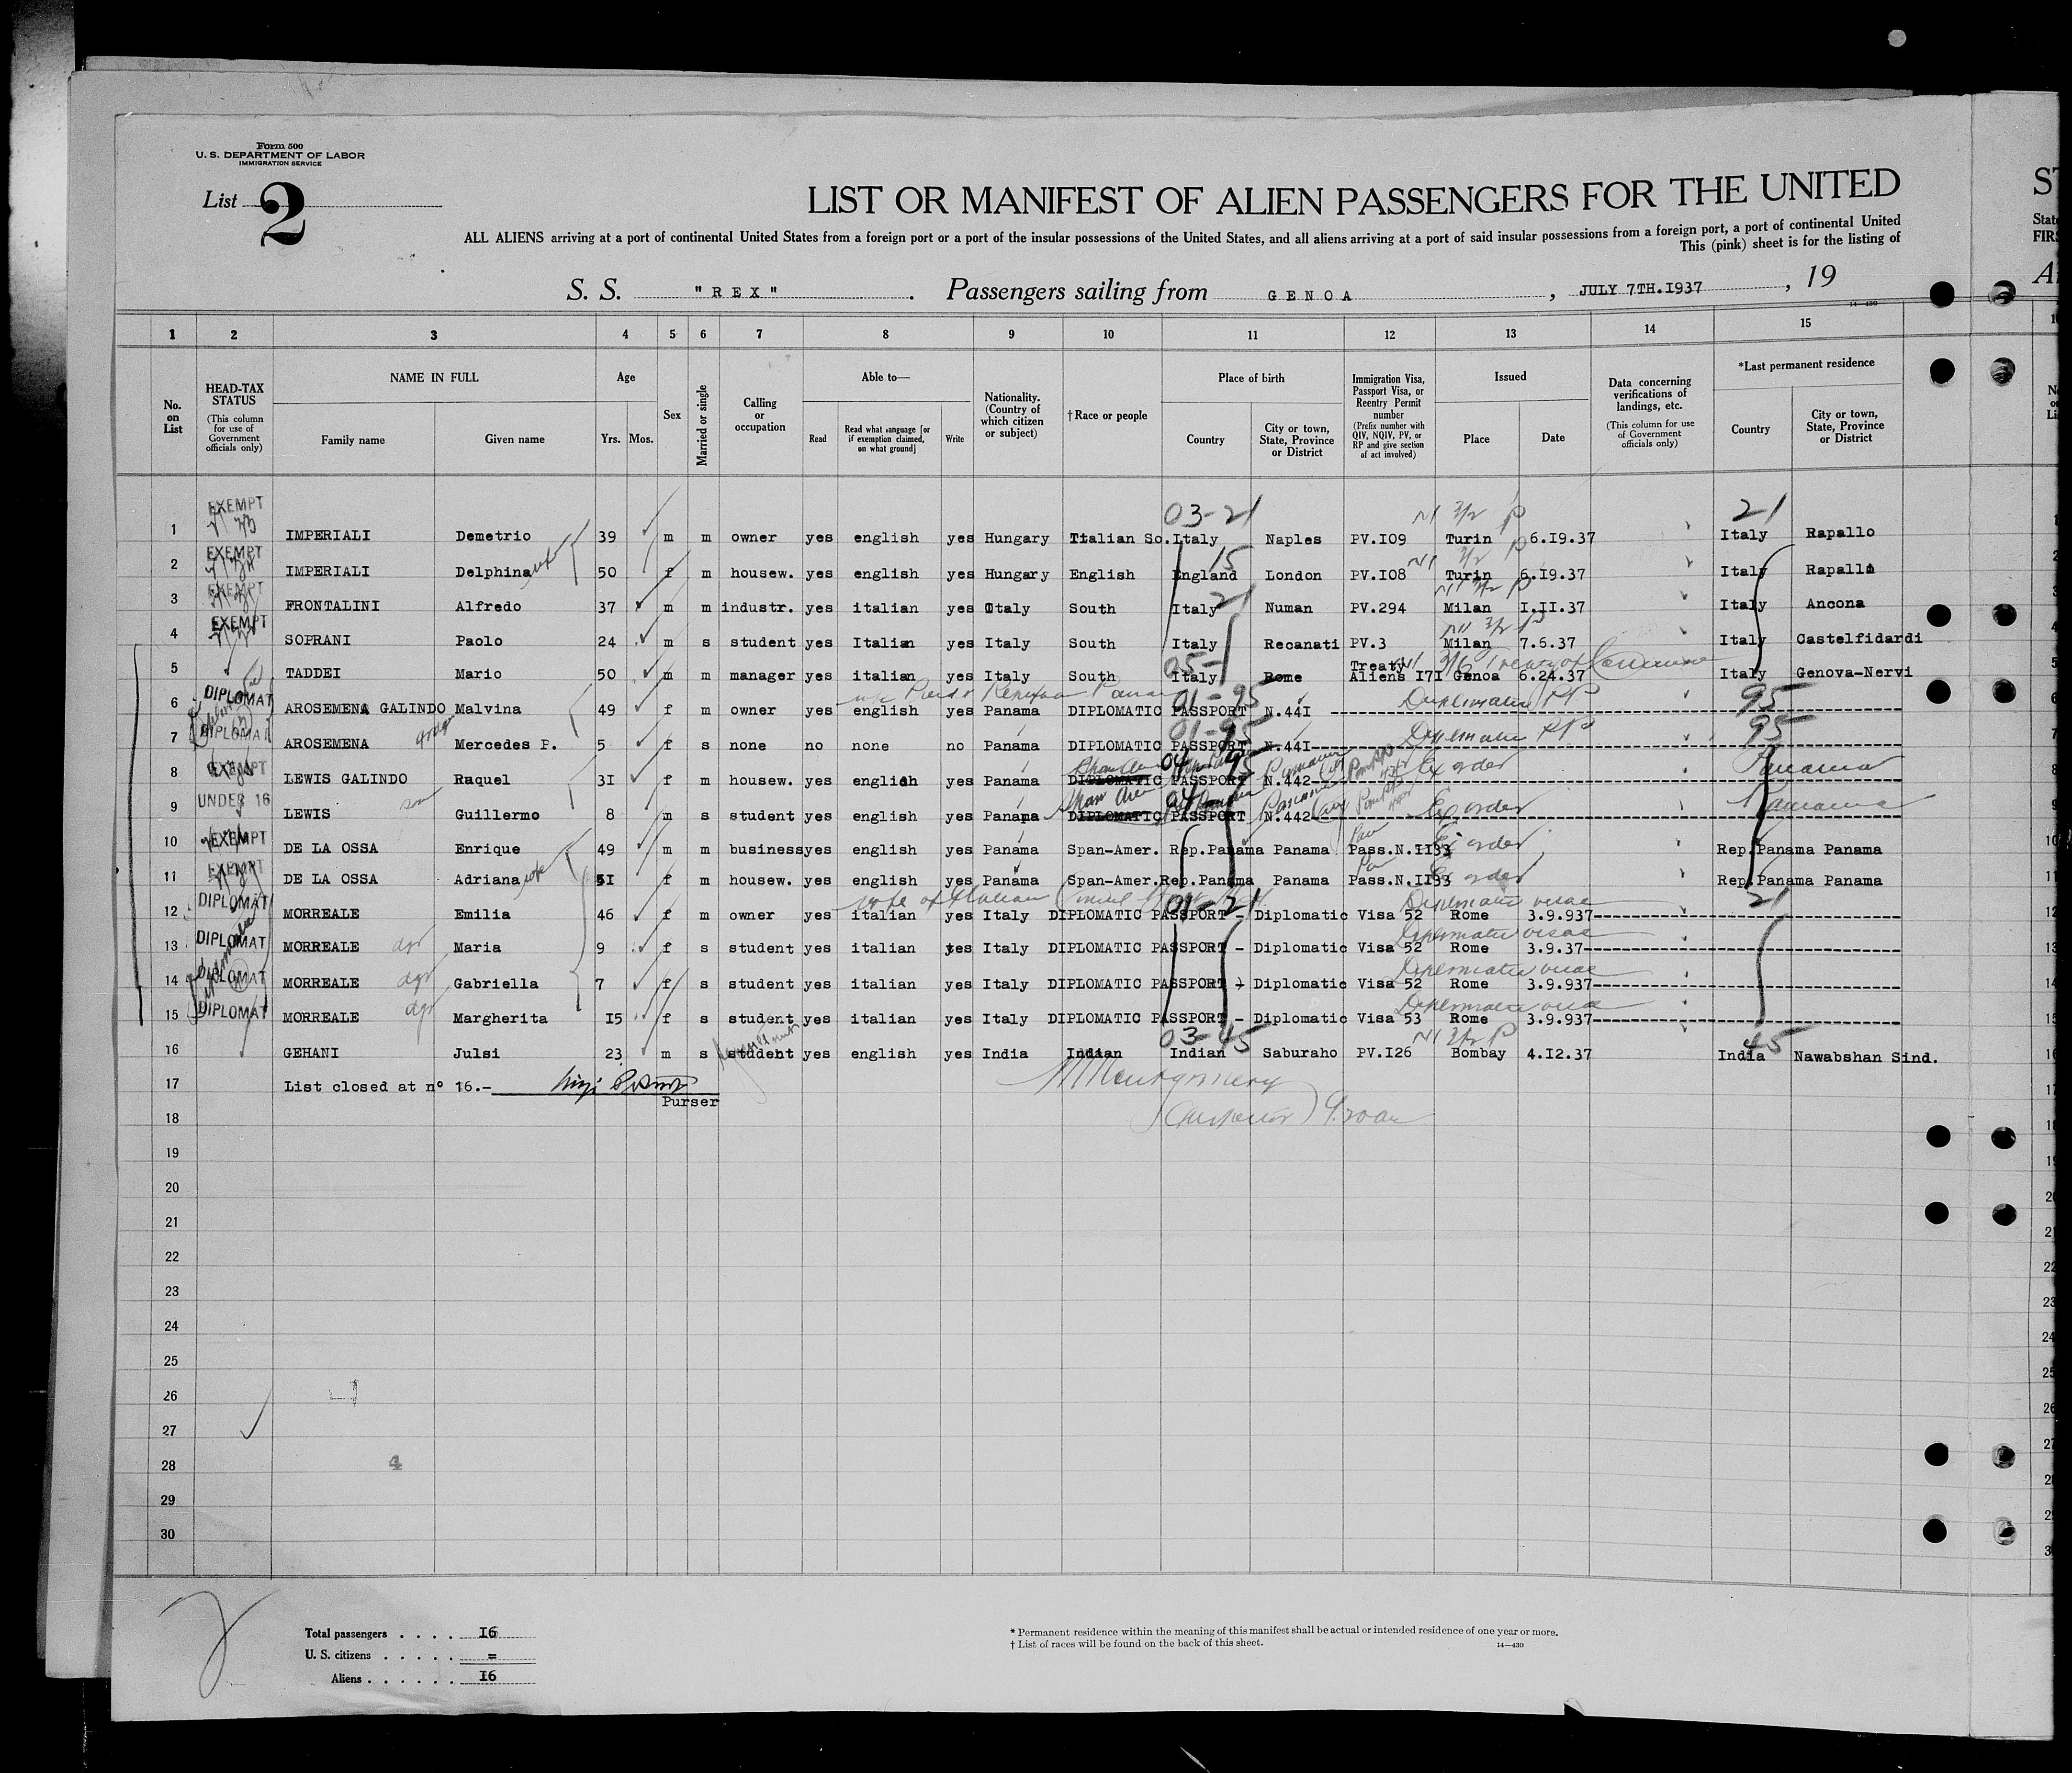 Form 500
U. S. DEPARTMENT OF LABOR
IMMIGRATION SERVICE
List 2
LIST OR MANIFEST OF ALIEN PASSENGERS FOR THE UNITED
ALL ALIENS arriving at a port of continental United States from a foreign port or a port of the insular possessions of the United States, and all aliens arriving at a port of said insular possessions from a foreign port, a port of continental United
This (pink) sheet is for the listing of
S. S. "REX" . Passengers sailing from GENOA , JULY 7TH.I937 , 19
14—430
1 2 3 4 5 6 7 8 9 10 11 12 13 14 15
No. on List
HEAD-TAX STATUS (This column for use of Government officials only)
NAME IN FULL Family name Given name
Age Yrs. Mos.
Sex
Married or single
Calling or occupation
Able to— Read Read what language [or if exemption claimed, on what ground] Write
Nationality. (Country of which citizen or subject)
†Race or people
Place of birth Country City or town, State, Province or District
Immigration Visa, Passport Visa, or Reentry Permit number (Prefix number with QIV, NQIV, PV, or RP and give section of act involved)
Issued Place Date
Data concerning verifications of landings, etc. (This column for use of Government officials only)
*Last permanent residence Country City or town, State, Province or District
03-21 21
1 EXEMPT IMPERIALI Demetrio 39 m m owner yes english yes Hungary Italian So. Italy Naples PV.I09 Turin 6.I9.37 Italy Rapallo
15
2 EXEMPT IMPERIALI Delphina wife 50 f m housew. yes english yes Hungary English England London PV.I08 Turin 6.I9.37 Italy Rapallo
21
3 EXEMPT FRONTALINI Alfredo 37 m m industr. yes italian yes Italy South Italy Numan PV.294 Milan I.II.37 Italy Ancona
4 EXEMPT SOPRANI Paolo 24 m s student yes Italian yes Italy South Italy Recanati PV.3 Milan 7.5.37 Italy Castelfidardi
5 TADDEI Mario 50 m m manager yes italian yes Italy South Italy Rome Treaty Aliens I7I Genoa 6.24.37 Italy Genova-Nervi
01-95 Diplomatic PP 95
6 DIPLOMAT AROSEMENA GALINDO Malvina 49 f m owner yes english yes Panama DIPLOMATIC PASSPORT N.44I
01-95 Diplomatic PP 95
7 DIPLOMAT AROSEMENA Mercedes P. 5 f s none no none no Panama DIPLOMATIC PASSPORT N.44I
04 95 Ex order Panama
8 EXEMPT LEWIS GALINDO Raquel 3I f m housew. yes english yes Panama DIPLOMATIC PASSPORT N.442
Ex order Panama
9 UNDER 16 LEWIS son Guillermo 8 m s student yes english yes Panama DIPLOMATIC PASSPORT N.442
Ex order
10 EXEMPT DE LA OSSA Enrique 49 m m business yes english yes Panama Span-Amer. Rep.Panama Panama Pass.N.II33 Rep.Panama Panama
11 EXEMPT DE LA OSSA Adriana wife 5I f m housew. yes english yes Panama Span-Amer. Rep.Panama Panama Pass.N.II33 Rep.Panama Panama
wife of Italian 01-21 Diplomatic visae 21
12 DIPLOMAT MORREALE Emilia 46 f m owner yes italian yes Italy DIPLOMATIC PASSPORT - Diplomatic Visa 52 Rome 3.9.937
Diplomatic visae
13 DIPLOMAT MORREALE dgr Maria 9 f s student yes italian yes Italy DIPLOMATIC PASSPORT - Diplomatic Visa 52 Rome 3.9.37
Diplomatic visae
14 DIPLOMAT MORREALE dgr Gabriella 7 f s student yes italian yes Italy DIPLOMATIC PASSPORT - Diplomatic Visa 52 Rome 3.9.937
Diplomatic visae
15 DIPLOMAT MORREALE dgr Margherita I5 f s student yes italian yes Italy DIPLOMATIC PASSPORT - Diplomatic Visa 53 Rome 3.9.937
03-45 45
16 GEHANI Julsi 23 m s student yes english yes India Indian Indian Saburaho PV.I26 Bombay 4.I2.37 India Nawabshan Sind.
17 List closed at n° 16.-
Purser
Montgomery
18
(Inspector) 9.20 am
19
20
21
22
23
24
25
26
27
28 4
29
30
Total passengers . . . . I6
U. S. citizens . . . . . =
Aliens . . . . . . I6
* Permanent residence within the meaning of this manifest shall be actual or intended residence of one year or more.
† List of races will be found on the back of this sheet. 14—430